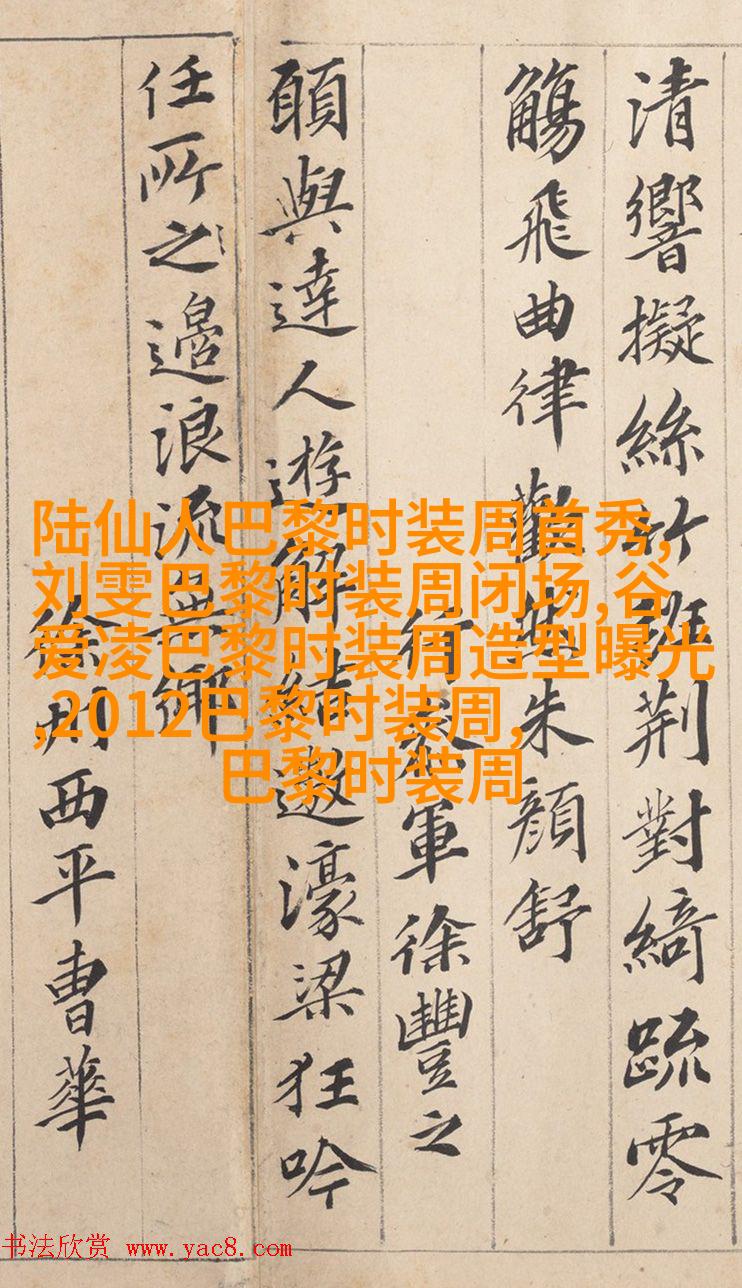 清響擬絲竹班荆對綺疏零
觴飛曲律歡然朱顔舒
行叅軍徐豐之
願與達人遊解結遨濠梁狂吟
任所之邉浪流無鄉
徐州西平曹華
陆仙人巴黎时装周首秀,
刘雯巴黎时装周闭场,谷
爱凌巴黎时装周造型曝光
,2012巴黎时装周,
巴黎时装周
书法欣赏 www.yac8.com